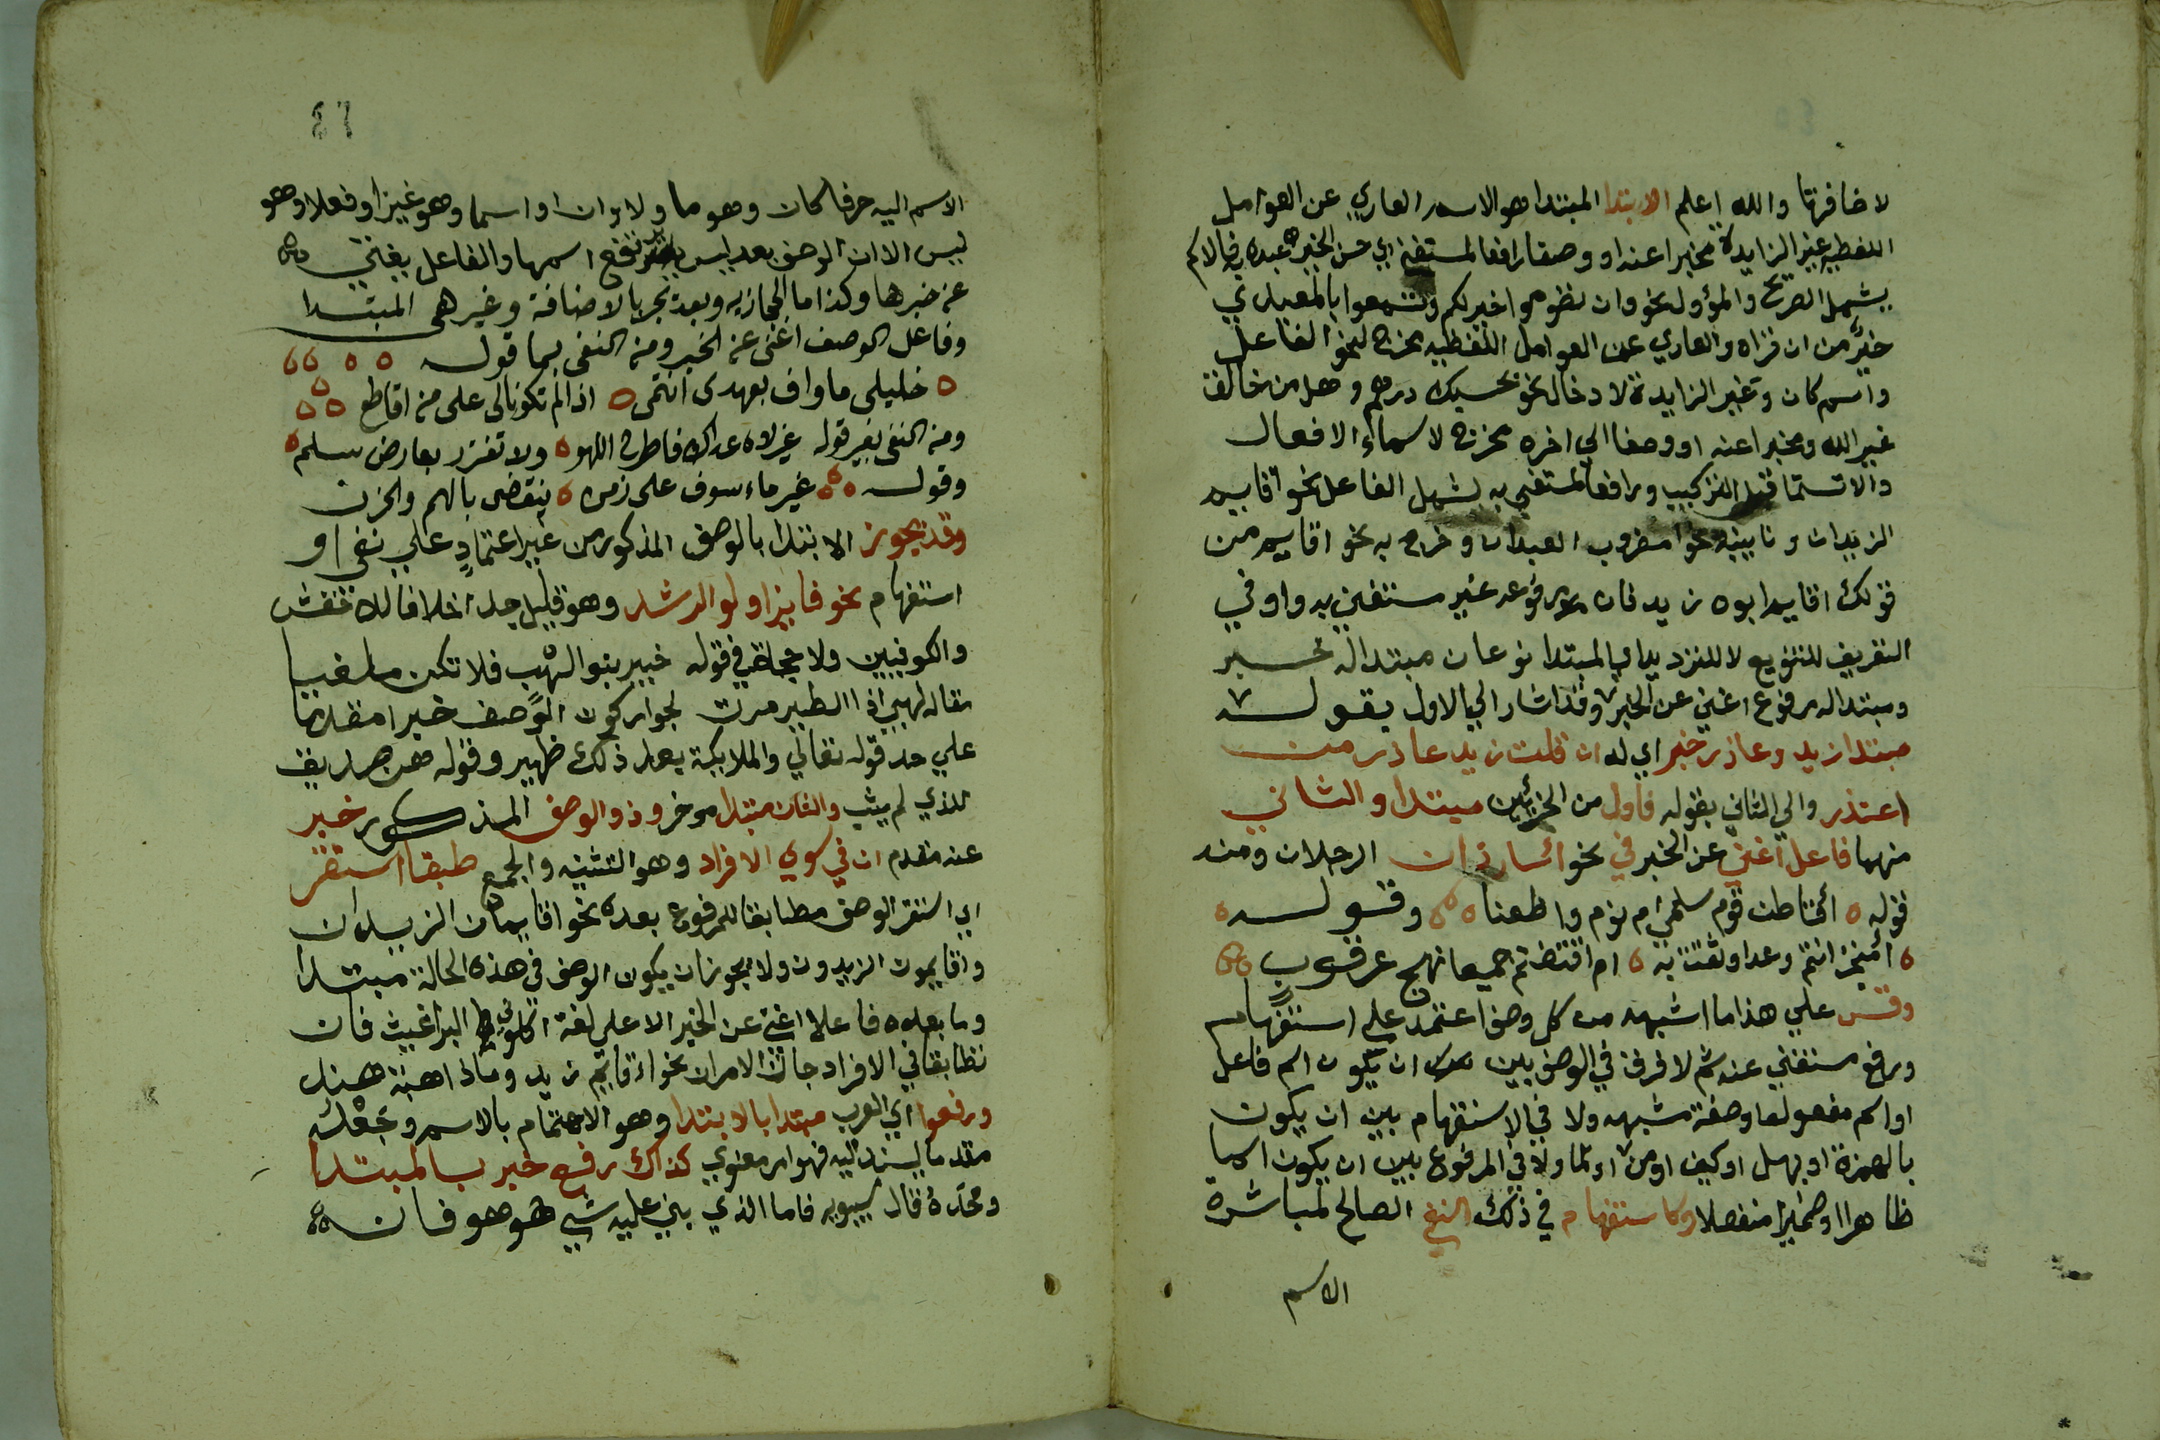 لاضافرتها والله اعلم الابتدا المبتدا هو الاسم العاري عن العوامل
اللفظيه غير الزايدة مخبرا عنه او وصفا رافعا لمستغنى به فالاسم
يشمل الصريح والمؤول نحو وان تصوموا خير لكم وتسمعوا بالمعيدي
خير من ان تراه والعاري عن العوامل اللفظيه مخرج لنحو الفاعل
واسم كان وغير الزايدة لادخال نحو بحسبك درهم وهل من خالق
غير الله ومخبرا عنه او وصفا الي اخره مخرج لاسماء الافعال
والاسما قبل التركيب ورافعا لمستغني به يشمل الفاعل نحو اقايم
الزيدان ونايبه نحو امضروب العبدان وخرج به نحو اقايم من
قولك اقايم ابوه زيد فان مرفوعه غير مستغني به واو في
التعريف للتنويع لا للترديد اي المبتدا نوعان مبتدا له خبر
ومبتدا له مرفوع اغني عن الخبر وقد اشار الي الاول بقوله
مبتدا زيد وعاذر خبر اي له ان قلت زيد عاذر من
اعتذر والي الثاني بقوله فاول من الجزئين مبتدا والثاني
منهما فاعل اغني عن الخبر في نحو اسار ذان الرجلان ومنه
قوله ه اقاطن قوم سلمي ام نووا ظعنا ه وقوله ه
ه امنجز انتم وعدا وثقت به ه ام اقتفيتم جميعا نهج عرقوب
وقس علي هذا ما اشبهه من كل وصف اعتمد علي استفهام
ورفع مستغني عنه ثم لا فرق في الوصف بين ان يكون اسم فاعل
او اسم مفعول او صفة مشبهه ولا في الاستفهام بين ان يكون
بالهمزة او بهل او كيف او من او ما ولا في المرفوع بين ان يكون اسما
ظاهرا او ضميرا منفصلا وكاستفهام في ذلك النفي الصالح لمباشرة
الاسم
٤٦
الاسم اليه حرفا كان وهو ما ولا وان او اسما وهو غير او فعلا وهو
ليس الا ان الوصف بعد ليس يرتفع اسمها والفاعل يغني
عن خبرها وكذا ما الحجازيه وبعد غير يجر بالاضافة وغير هي المبتدا
وفاعل الوصف اغنى عن الخبر ومن النفي بما قوله
ه خليلي ما واف بعهدي انتما ه اذا لم تكونا لي على من اقاطع
ومن النفي بغير قوله غير لاه عداك فاطرح اللهو ه ولا تغترر بعارض سلم
وقوله غير ماسوف على زمن ه ينقضي بالهم والحزن
وقد يجوز الابتدا بالوصف المذكور من غير اعتماد علي نفي او
استفهام نحو فايز اولو الرشد وهو قليل جدا خلافا للاخفش
والكوفيين ولا حجة في قوله خبير بنو لهب فلا تكن ملغيا
مقالة لهبي اذا الطير مرت لجواز كون الوصف خبرا مقدما
علي حد قوله تعالي والملايكة بعد ذلك ظهير وقوله هن صديق
للذي لم يشب والثان مبتدا موخر وذو الوصف المذكور خبر
عنه مقدم ان في سوي الافراد وهو التثنيه والجمع طبقا استقر
اي استقر الوصف مطابقا للمرفوع بعده نحو اقايمان الزيدان
واقايمون الزيدون ولا يجوز ان يكون الوصف في هذه الحالة مبتدا
وما بعده فاعلا اغني عن الخبر الا علي لغة اكلوني البراغيث فان
تطابقا في الافراد جاز الامران نحو اقايم زيد وما ذاهبة هند
ورفعوا اي العرب مبتدا بالابتدا وهو الاهتمام بالاسم وجعله
مقدما ليسند اليه فهو امر معنوي كذاك رفع خبر بالمبتدا
وحده قال سيبويه فاما الذي بني عليه شي هو هو فان